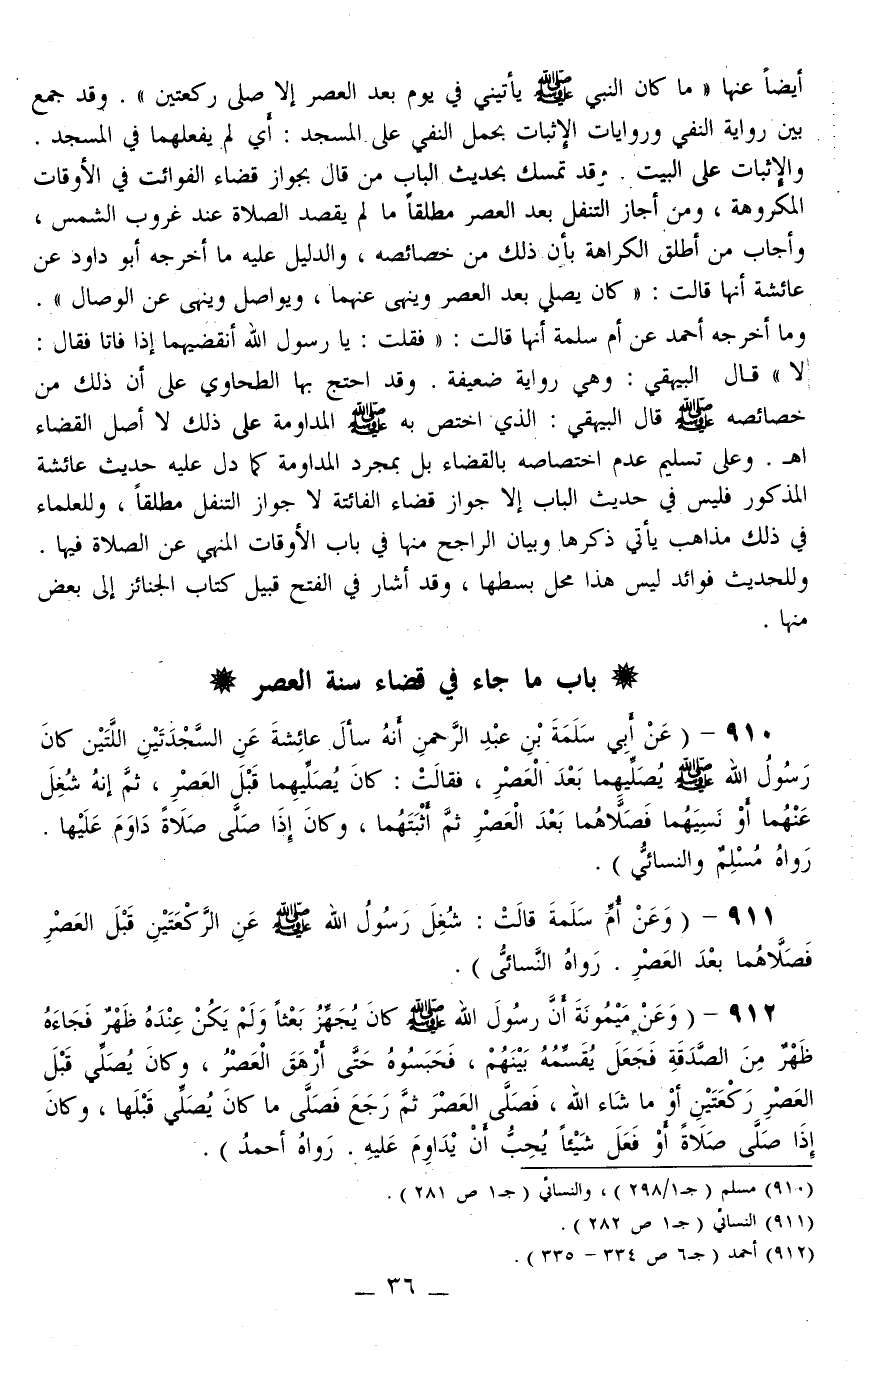 أيضاً عنها « ما كان النبي ﷺ يأتيني في يوم بعد العصر إلا صلى ركعتين » . وقد جمع
بين رواية النفي وروايات الإثبات بحمل النفي على المسجد : أي لم يفعلهما في المسجد .
والإثبات على البيت . وقد تمسك بحديث الباب من قال بجواز قضاء الفوائت في الأوقات
المكروهة ، ومن أجاز التنفل بعد العصر مطلقاً ما لم يقصد الصلاة عند غروب الشمس ،
وأجاب من أطلق الكراهة بأن ذلك من خصائصه ، والدليل عليه ما أخرجه أبو داود عن
عائشة أنها قالت : « كان يصلي بعد العصر وينهى عنهما ، ويواصل وينهى عن الوصال » .
وما أخرجه أحمد عن أم سلمة أنها قالت : « فقلت : يا رسول الله أنقضيهما إذا فاتا فقال :
لا » قال البيهقي : وهي رواية ضعيفة . وقد احتج بها الطحاوي على أن ذلك من
خصائصه ﷺ قال البيهقي : الذي اختص به ﷺ المداومة على ذلك لا أصل القضاء
اهـ . وعلى تسليم عدم اختصاصه بالقضاء بل بمجرد المداومة كما دل عليه حديث عائشة
المذكور فليس في حديث الباب إلا جواز قضاء الفائتة لا جواز التنفل مطلقاً ، وللعلماء
في ذلك مذاهب يأتي ذكرها وبيان الراجح منها في باب الأوقات المنهي عن الصلاة فيها .
وللحديث فوائد ليس هذا محل بسطها ، وقد أشار في الفتح قبيل كتاب الجنائز إلى بعض
منها .
باب ما جاء في قضاء سنة العصر
٩١٠ – ( عَنْ أَبِي سَلَمَةَ بْنِ عبْدِ الرَّحمنِ أَنهُ سألَ عائِشةَ عَنِ السَّجْدَتَيْنِ اللَّتَيْن كانَ
رَسُولُ الله ﷺ يُصَلِّيهِما بَعْدَ الْعَصْرِ ، فقالَتْ : كانَ يُصَلِّيهِما قَبْلَ العَصْرِ ، ثمَّ إنهُ شُغِلَ
عَنْهُما أَوْ نَسِيَهُما فَصَلَّاهُما بَعْدَ الْعَصْرِ ثمَّ أَثْبَتَهُما ، وكانَ إذَا صلَّى صلَاةً دَاوَمَ عَلَيْها .
رَواهُ مُسْلِمٌ والنسائيُّ ) .
٩١١ – ( وَعَنْ أُمِّ سَلَمةَ قالَتْ : شُغِلَ رَسُولُ الله ﷺ عَنِ الرَّكْعَتَيْنِ قَبْلَ العَصْرِ
فَصَلَّاهُما بعْدَ العَصْرِ . رَواهُ النَّسائىُّ ) .
٩١٢ – ( وَعَنْ مَيْمُونَةَ أَنَّ رسُولَ الله ﷺ كانَ يُجَهِّزُ بَعْثاً وَلَمْ يَكُنْ عِنْدَهُ ظَهْرٌ فَجَاءَهُ
ظَهْرٌ مِنَ الصَّدَقةِ فَجَعَل يُقسِّمُهُ بَيْنَهُمْ ، فَحَبَسُوهُ حَتَّى أَرْهَقَ الْعَصْرُ ، وكانَ يُصَلِّي قَبْلَ
العَصْرِ رَكْعَتَيْنِ أوْ ما شَاء الله ، فَصَلَّى العَصْرَ ثمَّ رَجَعَ فَصَلَّى ما كانَ يُصَلِّي قَبْلَها ، وكانَ
إِذَا صَلَّى صَلَاةً أَوْ فَعَلَ شَيْئاً يُحِبُّ أَنْ يْدَاوِمَ عَليهِ . رَواهُ أحمدُ ) .
(٩١٠) مسلم ( جـ١/٢٩٨ ) ، والنسائي ( جـ١ ص ٢٨١ ) .
(٩١١) النسائي ( جـ١ ص ٢٨٢ ) .
(٩١٢) أحمد ( جـ٦ ص ٣٣٤ – ٣٣٥ ) .
ــ ٣٦ ــ